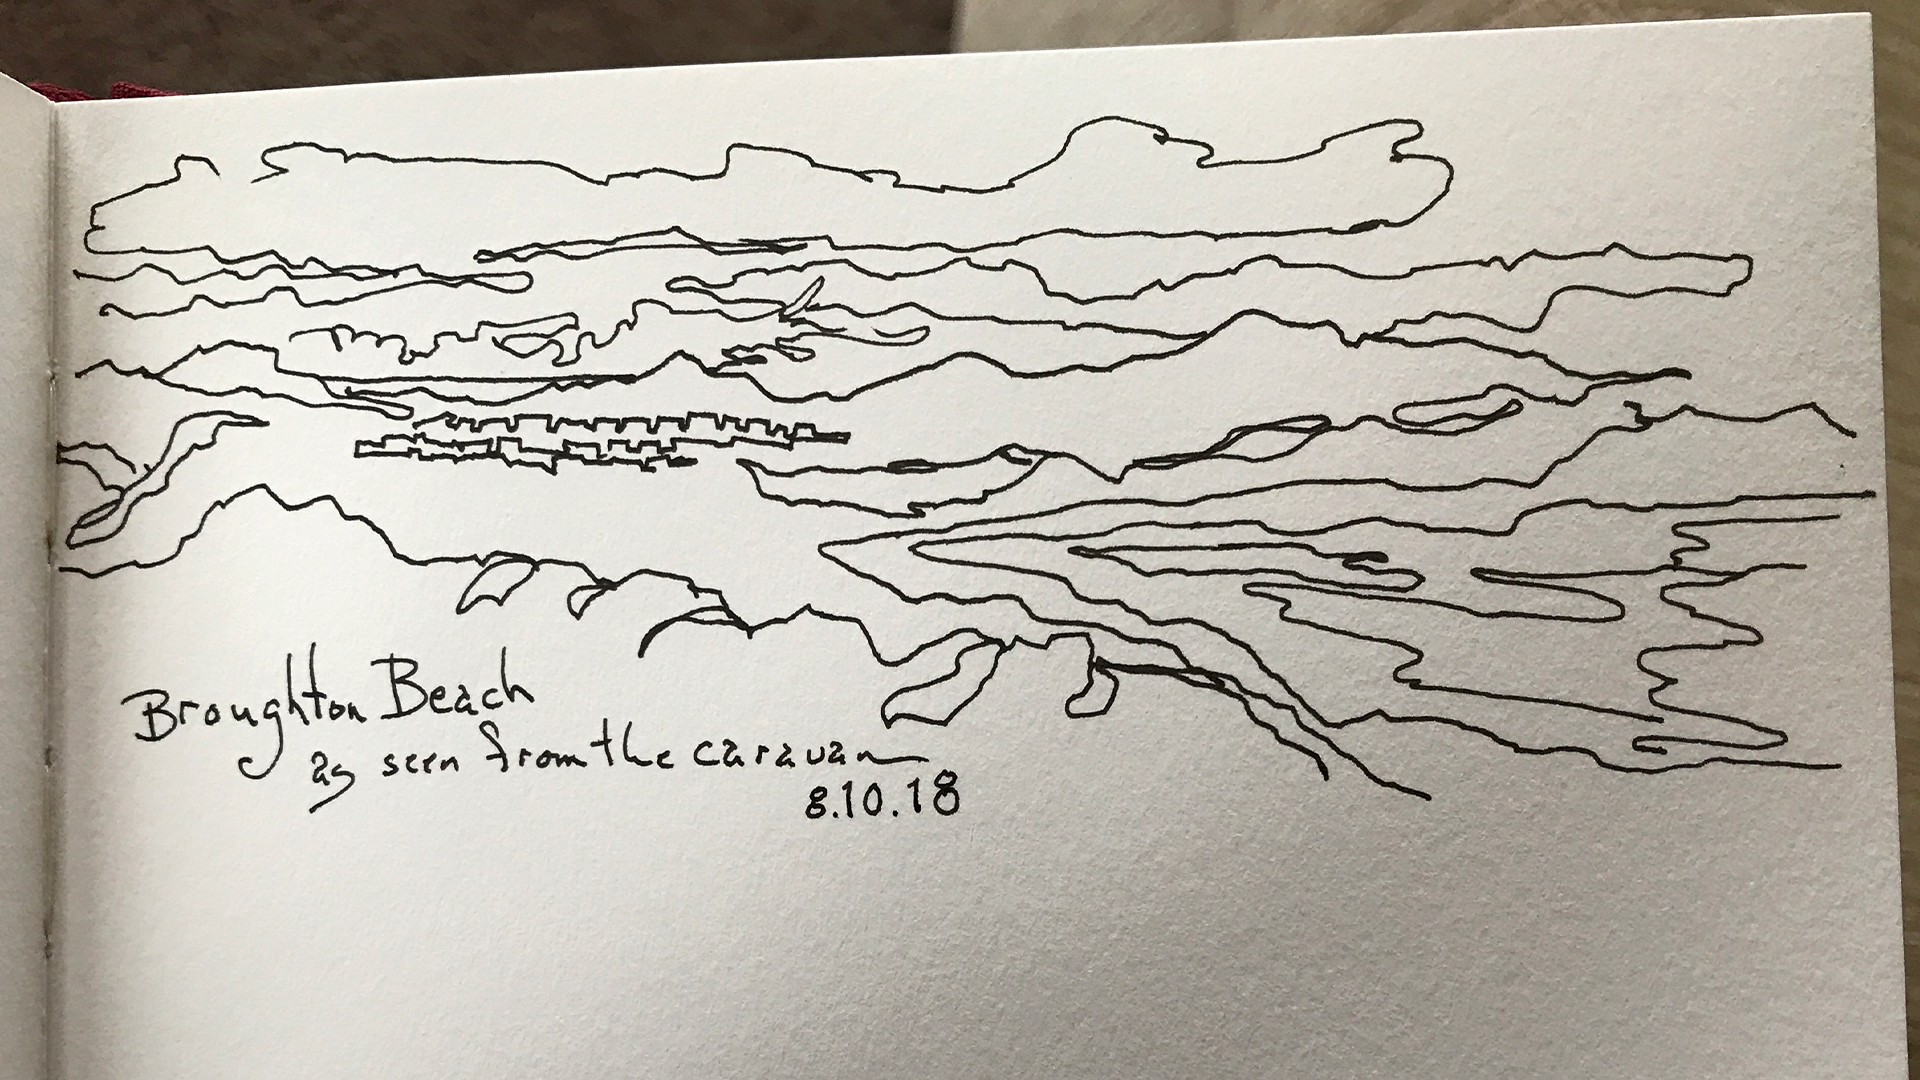 Broughton Beach
as seen from the caravan
8.10.18